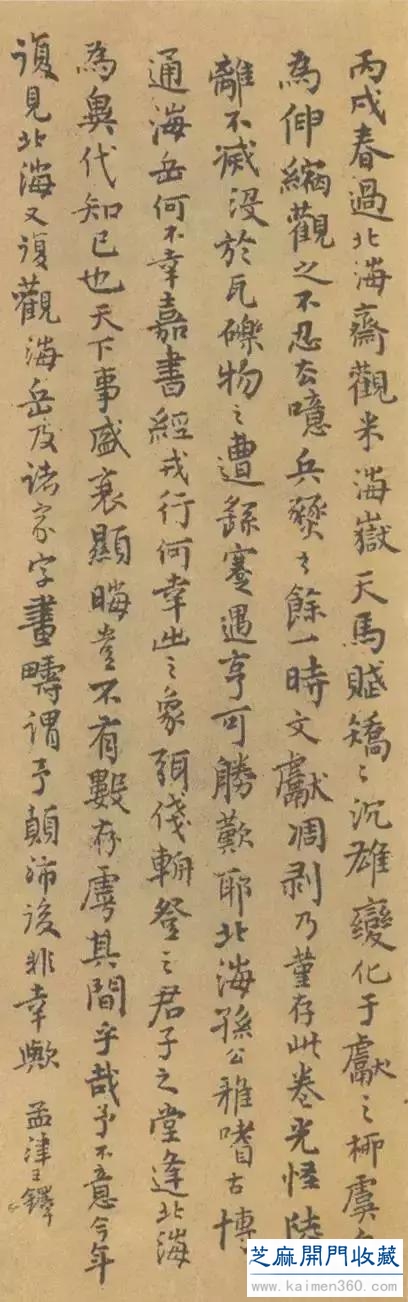 丙戌春過北海齋觀米海嶽天馬賦矯〻沉雄變化于獻之柳虞
為伸縮觀之不忍去噫兵燹之餘一時文獻凋剥乃堇存此卷光怪陸
離不滅没於瓦礫物之遭繇蹇遇亨可勝歎耶北海孫公雅嗜古博
通海岳何不幸嘉書經戎行何幸出之象弭俴輈登之君子之堂逢北海
為異代知已也天下事盛衰顯晦豈不有數存虖其間乎哉予不意今年
復見北海又復觀海岳及諸家字畫疇謂予顛沛後非幸歟 孟津王鐸
芝麻開門收藏
www.kaimen360.com